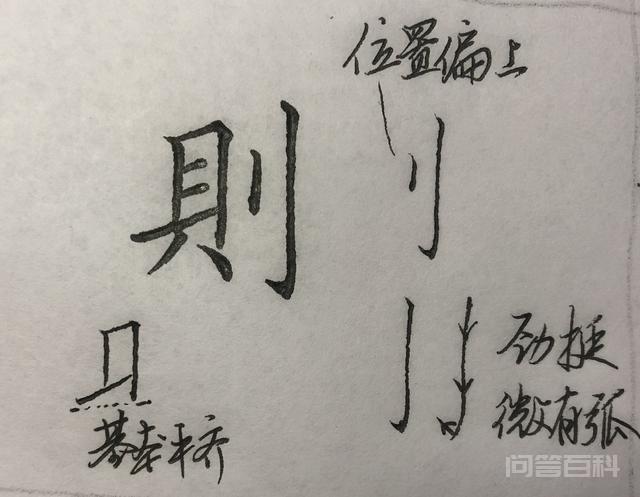 位置偏上
則
刂
劲挺
微有弧
基本平齐
问答百科